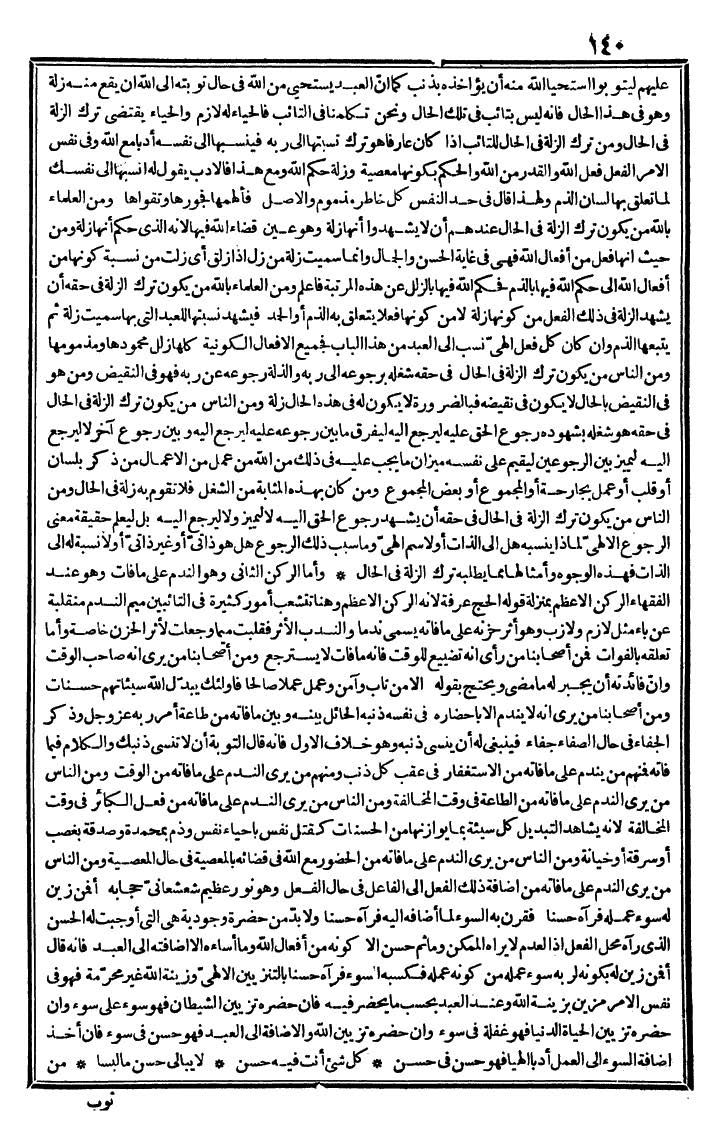 ١٤٠
عليهم ليتوبوا استحيا الله منه أن يؤاخذه بذنب كما ان العبد يستحيى من الله فى حال توبته الى الله ان يقع منه زلة
وهو فى هذا الحال فانه ليس بتائب فى تلك الحال ونحن تكلمنا فى التائب فالحياء له لازم والحياء يقتضى ترك الزلة
فى الحال ومن ترك الزلة فى الحال للتائب اذا كان عارفا هو ترك نسبتها الى ربه فينسبها الى نفسه أدبا مع الله وفى نفس
الامر الفعل فعل الله والقدر من الله والحكم بكونها معصية وزلة حكم الله ومع هذا فالادب يقول له انسبها الى نفسك
لما تعلق بها لسان الذم ولهذا قال فى حد النفس كل خاطر مذموم والاصل فألهمها فجورها وتقواها ومن العلماء
بالله من يكون ترك الزلة فى الحال عندهم أن لا يشهدوا أنها زلة وهو عين قضاء الله فيها لانه الذى حكم أنها زلة ومن
حيث انها فعل من أفعال الله فهى فى غاية الحسن والجمال وانما سميت زلة من زل اذا زلق أى زلت من نسبة كونها من
أفعال الله الى حكم الله فيها بالذم فحكم الله فيها بالزلل عن هذه المرتبة فاعلم ومن العلماء بالله من يكون ترك الزلة فى حقه أن
يشهد الزلة فى ذلك الفعل من كونها زلة لا من كونها فعلا يتعلق به الذم أو الحمد فيشهد نسبتها للعبد التى بها سميت زلة ثم
يتبعها الذم وان كان كل فعل الهىّ نسب الى العبد من هذا الباب لجميع الافعال الكونية كلها زلل محمودها ومذمومها
ومن الناس من يكون ترك الزلة فى الحال فى حقه شغله برجوعه الى ربه والذلة رجوعه عن ربه فهو فى النقيض ومن هو
فى النقيض بالحال لا يكون فى نقيضه فبالضرورة لا يكون له فى هذه الحال زلة ومن الناس من يكون ترك الزلة فى الحال
فى حقه هو شغله بشهوده رجوع الحق عليه ليرجع اليه ليفرق ما بين رجوعه عليه ليرجع اليه وبين رجوع آخر لا ليرجع
اليه ليميز بين الرجوعين ليقيم على نفسه ميزان ما يجب عليه فى ذلك من الله من عمل من الاعمال من ذكر بلسان
أو قلب أو عمل بجارحة أو المجموع أو بعض المجموع ومن كان بهذه المثابة من الشغل فلا تقوم به زلة فى الحال ومن
الناس من يكون ترك الزلة فى الحال فى حقه أن يشهد رجوع الحق اليه لا ليميز ولا ليرجع اليه بل ليعلم حقيقة معنى
الرجوع الالهىّ لماذا ينسبه هل الى الذات أو لاسم الهىّ وما سبب ذلك الرجوع هل هو ذاتىّ أو غير ذاتىّ أو لا نسبة له الى
الذات فهذه الوجوه وأمثالها مما يطلبه ترك الزلة فى الحال * وأما الركن الثانى وهو الندم على ما فات وهو عند
الفقهاء الركن الاعظم بمنزلة قوله الحج عرفة لانه الركن الاعظم وهنا تتشعب أمور كثيرة فى التائبين ميم الندم منقلبة
عن باء مثل لازم ولازب وهو أثر حزنه على ما فاته يسمى ندما والندب الأثر فقلبت ميما وجعلت لأثر الحزن خاصة وأما
تعلقه بالفوات فمن أصحابنا من رأى انه تضييع للوقت فانه ما فات لا يسترجع ومن أصحابنا من يرى انه صاحب الوقت
وان فائدته أن يجبر له ما مضى ويحتج بقوله الا من تاب وآمن وعمل عملا صالحا فاولئك يبدّل الله سيئاتهم حسنات
ومن أصحابنا من يرى انه لا يندم الا باحضاره فى نفسه ذنبه الحائل بينه وبين ما فاته من طاعة أمر ربه عز وجل وذكر
الجفاء فى حال الصفاء جفاء فينبغى له أن ينسى ذنبه وهو خلاف الاول فانه قال التوبة أن لا تنسى ذنبك والكلام فيما
فاته فمنهم من يندم على ما فاته من الاستغفار فى عقب كل ذنب ومنهم من يرى الندم على ما فاته من الوقت ومن الناس
من يرى الندم على ما فاته من الطاعة فى وقت المخالفة ومن الناس من يرى الندم على ما فاته من فعل الكبائر فى وقت
المخالفة لانه يشاهد التبديل كل سيئة بما يوازنها من الحسنات كقتل نفس باحياء نفس وذم بمحمدة وصدقة بغصب
أو سرقة أو خيانة ومن الناس من يرى الندم على ما فاته من الحضور مع الله فى قضائه بالمعصية فى حال المعصية ومن الناس
من يرى الندم على ما فاته من اضافة ذلك الفعل الى الفاعل فى حال الفعل وهو نور عظيم شعشعانىّ حجابه أفمن زين
له سوء عمله فرآه حسنا فقرن به السوء لما أضافه اليه فرآه حسنا ولا بدّ من حضرة وجودية هى التى أوجبت له الحسن
الذى رآه محل الفعل اذ العدم لا يراه الممكن وما ثم حسن الا كونه من أفعال الله وما أساءه الا اضافته الى العبد فانه قال
أفمن زين له بكونه لربه سوء عمله من كونه عمله فكسبه السوء فرآه حسنا بالتزيين الالهىّ وزينة الله غير محرّمة فهو فى
نفس الامر مزين بزينة الله وعند العبد بحسب ما يحضر فيه فان حضره تزيين الشيطان فهو سوء على سوء وان
حضره تزيين الحياة الدنيا فهو غفلة فى سوء وان حضره تزيين الله والاضافة الى العبد فهو حسن فى سوء فان أخذ
اضافة السوء الى العمل أدبا الهيا فهو حسن فى حسن * كل شئ أنت فيه حسن * لا يبالى حسن ما لبسا * من
ثوب